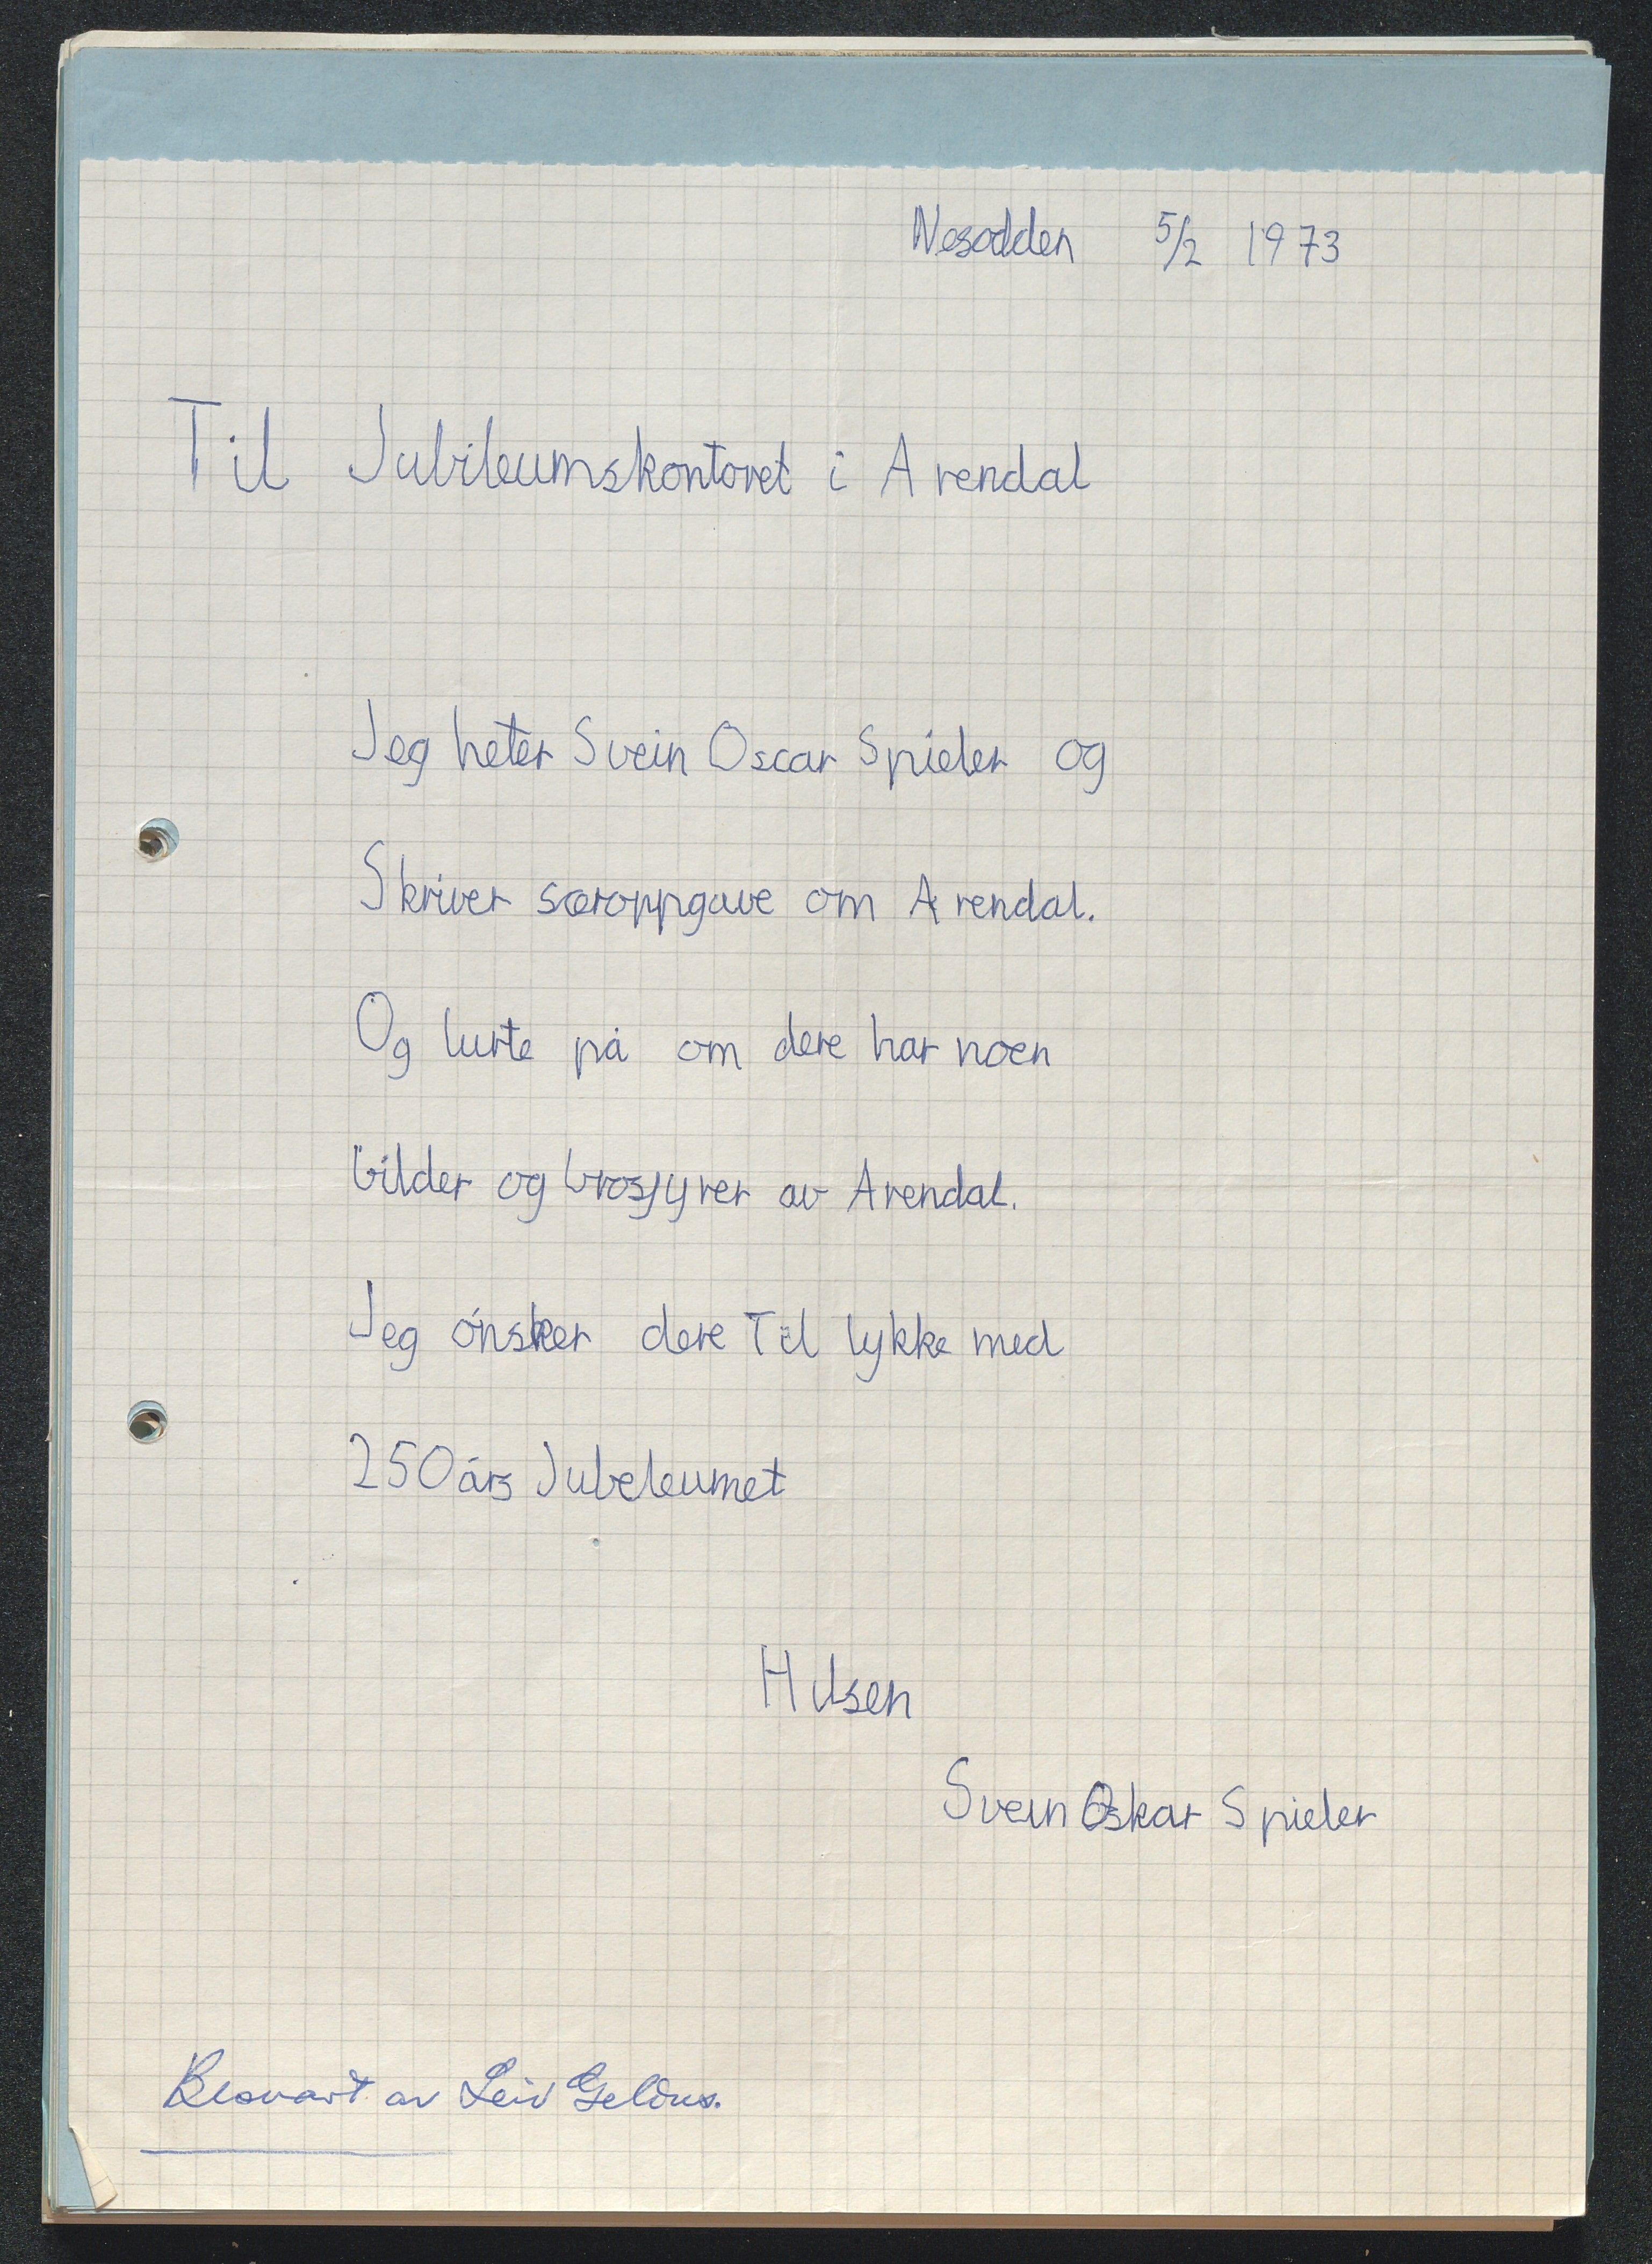 Nesodden 5/2 1973
Til Jubileumskontoret i Arendal
Jeg heter Svein Oscar Spieler og
Skriver særoppgave om Arendal.
Og lurte på om dere har noen
bilder og brosjyrer av Arendal.
Jeg ønsker dere Til lykke med
250 års Jubeleumet
Hilsen
Svein Oskar Spieler
Besvart av Leiv